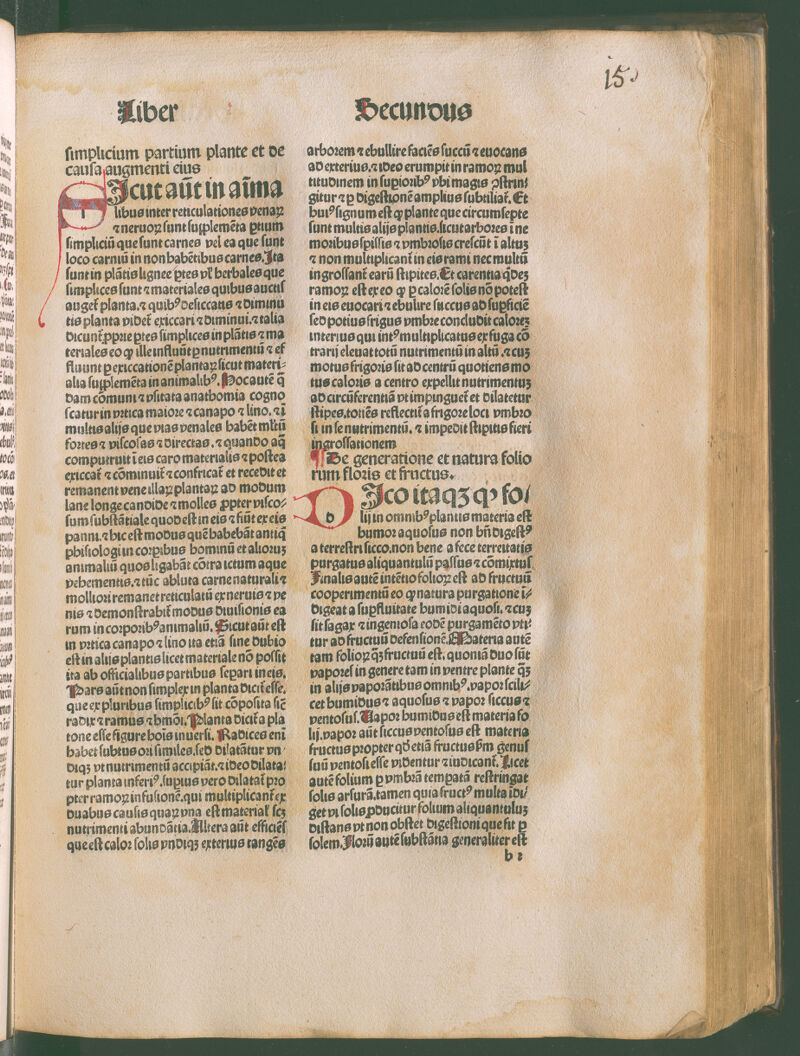 15.
Liber Secundus
simplicium partium plante et de
causa augmenti eius
SIcut aūt in aīma
libus inter reticulationes venaꝝ
⁊ neruoꝝ sunt supplemēta ꝑtium
simpliciū que sunt carnes vel ea que sunt
loco carniū in non habētibus carnes. Ita
sunt in plātis lignee ꝑtes vł herbales que
simplices sunt ⁊ materiales quibus auctis
auget̄ planta. ⁊ quibꝰ desiccatis ⁊ diminu
tis planta videt̄ exiccari ⁊ diminui. ⁊ talia
dicunt̄ ꝓprie ꝑtes simplices in plātis ⁊ ma
teriales eo ꝙ ille influūt ꝑ nutrimentū ⁊ ef
fluunt ꝑ exiccationē plantaꝝ sicut materi-
alia supplemēta in animalibꝰ. Hoc autē q̄
dam comuni ⁊ vsitata anathomia cogno
scatur in vrtica maiore ⁊ canapo ⁊ lino. ⁊ ī
multis alijs que vias venales habēt mltū
fortes ⁊ viscosas ⁊ directas. ⁊ quando aq̄
computruit ī eis caro materialis ⁊ postea
exiccat̄ ⁊ cōminuit̄ ⁊ confricat̄ et recedit et
remanent vene illaꝝ plantaꝝ ad modum
lane longe candide ⁊ molles ꝓpter visco-
sum substātiale quod est in eis ⁊ fiūt ex eis
panni. ⁊ hic est modus quē habebāt antiq̄
phisiologi in corꝑibus hominū et alioꝝ
animaliū quos ligabāt cōtra ictum aque
vehementis. ⁊ tūc abluta carne naturali ⁊
molliori remanet reticulatū ex neruis ⁊ ve
nis ⁊ demonstrabit̄ modus diuisionis ea
rum in corporibꝰ animaliū. Sicut aūt est
in vrtica canapo ⁊ lino ita etiā sine dubio
est in alijs plantis licet materiale nō possit
ita ab officialibus partibus separi in eis.
Pars aūt non simplex in planta dicit̄ esse.
que ex pluribus simplicibꝰ sit cōposita sic̄
radix ⁊ ramus ⁊ hmōi. Planta dicit̄ a pla
tone esse figure hoīs inuersi. Radices enī
habet subtus ori similes. sed dilatātur vn
diqꝫ vt nutrimentū accipiāt. ⁊ ideo dilata
tur planta inferiꝰ. supius vero dilatat̄ pro
pter ramoꝝ infusionē. qui multiplicant̄ ex
duabus causis quaꝝ vna est material̄ scꝫ
nutrimenti abundātia. Altera aūt efficiēs
que est calor solis vndiqꝫ exterius tangēs
arborem ⁊ ebullire faciēs succū ⁊ euocans
ad exterius. ⁊ ideo erumpit in ramoꝝ mul
titudinem in supioribꝰ vbi magis ꝯstrin
gitur ⁊ ꝑ digestionē amplius subtiliat̄. Et
huiꝰ signum est ꝙ plante que circumsepte
sunt multis alijs plantis. sicut arbores ī ne
moribus spissis ⁊ vmbrosis crescūt ī altuꝫ
⁊ non multiplicant̄ in eis rami nec multū
ingrossant̄ earū stipites. Et carentia qdeꝫ
ramoꝝ est ex eo ꝙ ꝑ calorē solis nō potest
in eis euocari ⁊ ebulire succus ad supficiē
sed potius frigus vmbre concludit caloreꝫ
interius qui intꝰ multiplicatus ex fuga cō
trarij eleuat totū nutrimentū in altū. ⁊ cuꝫ
motus frigoris sit ad centrū quotiens mo
tus caloris a centro expellit nutrimentuꝫ
ad circūferentiā vt impinguet̄ et dilatetur
stipes. totiēs reflectit̄ a frigore loci vmbro
si in se nutrimentū. ⁊ impedit̄ stipitis fieri
ingrossationem
¶ De generatione et natura folio
rum floris et fructus.
DIco itaqꝫ ꝙ fo/
lij in omnibꝰ plantis materia est
humor aquosus non bn̄ digestꝰ
a terrestri sicco. non bene a fece terreitatis
purgatus aliquantulū passus ⁊ cōmixtus
Finalis autē intētio folioꝝ est ad fructuū
cooperimentū eo ꝙ natura purgatione ī-
digeat a supfluitate humidi aquosi. ⁊ cuꝫ
sit sagax ⁊ ingeniosa eodē purgamēto vti-
tur ad fructuū defensionē. Materia autē
tam folioꝝ qꝫ fructuū est. quoniā duo sūt
vapores in genere tam in ventre plante qꝫ
in alijs vaporātibus omnibꝰ. vapor scili-
cet humidus ⁊ aquosus ⁊ vapor siccus ⁊
ventosus. Vapor humidus est materia fo
lij. vapor aūt siccus ventosus est materia
fructus propter qd etiā fructus ẜm genus
suū ventosi esse videntur ⁊ iudicant̄. Licet
autē folium ꝑ vmbrā tempatā restringat
solis arsurā. tamen quia fructꝰ multa īdi/
get vi solis ꝓducitur folium aliquantuluꝫ
distans vt non obstet digestioni que fit ꝑ
solem. Florū autē substātia generaliter est
b 2